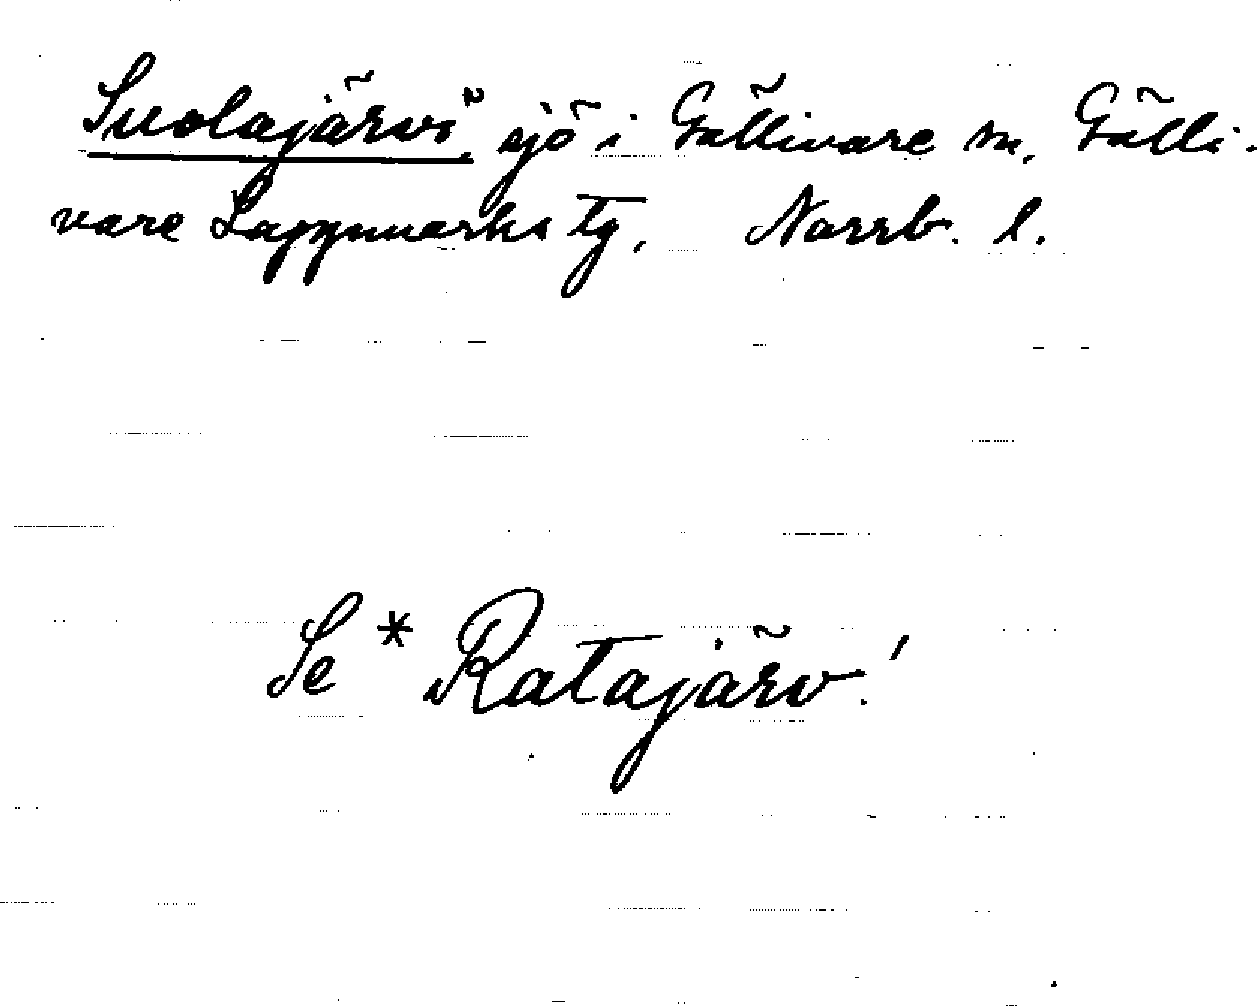 Suolajärvi, sjö i Gällivare sn, Gälli-
vare Lappmarks tg, Norrb. l.
Se * Ratajärv!